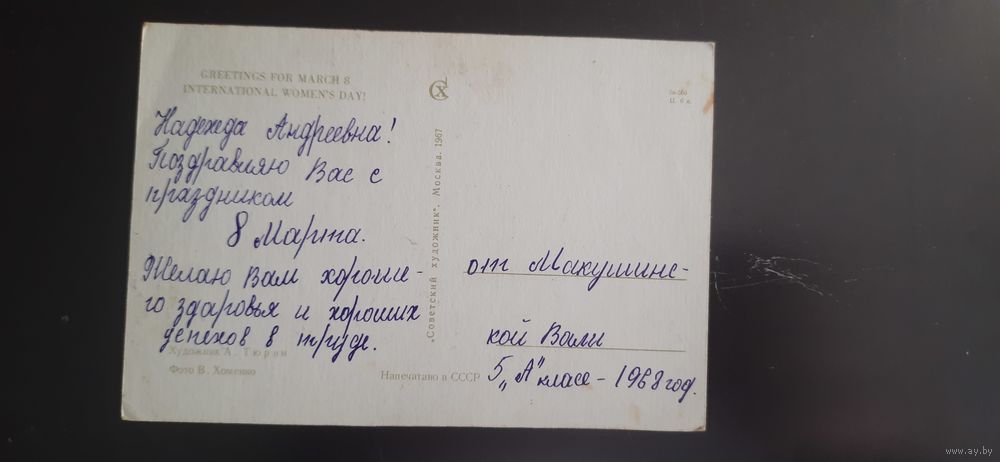 GREETINGS FOR MARCH 8
INTERNATIONAL WOMEN'S DAY!
Надежда Андреевна!
Поздравляю Вас с
праздником
8 Марта.
Желаю Вам хороше-
го здоровья и хороших
успехов в труде.
Художник А. Тюрин
Фото В. Хоменко
„Советский художник". Москва. 1967
Напечатано в СССР
от Макушинс-
кой Вали
5 „А" класс - 1968 год.
Ц. 6 к.
www.ay.by